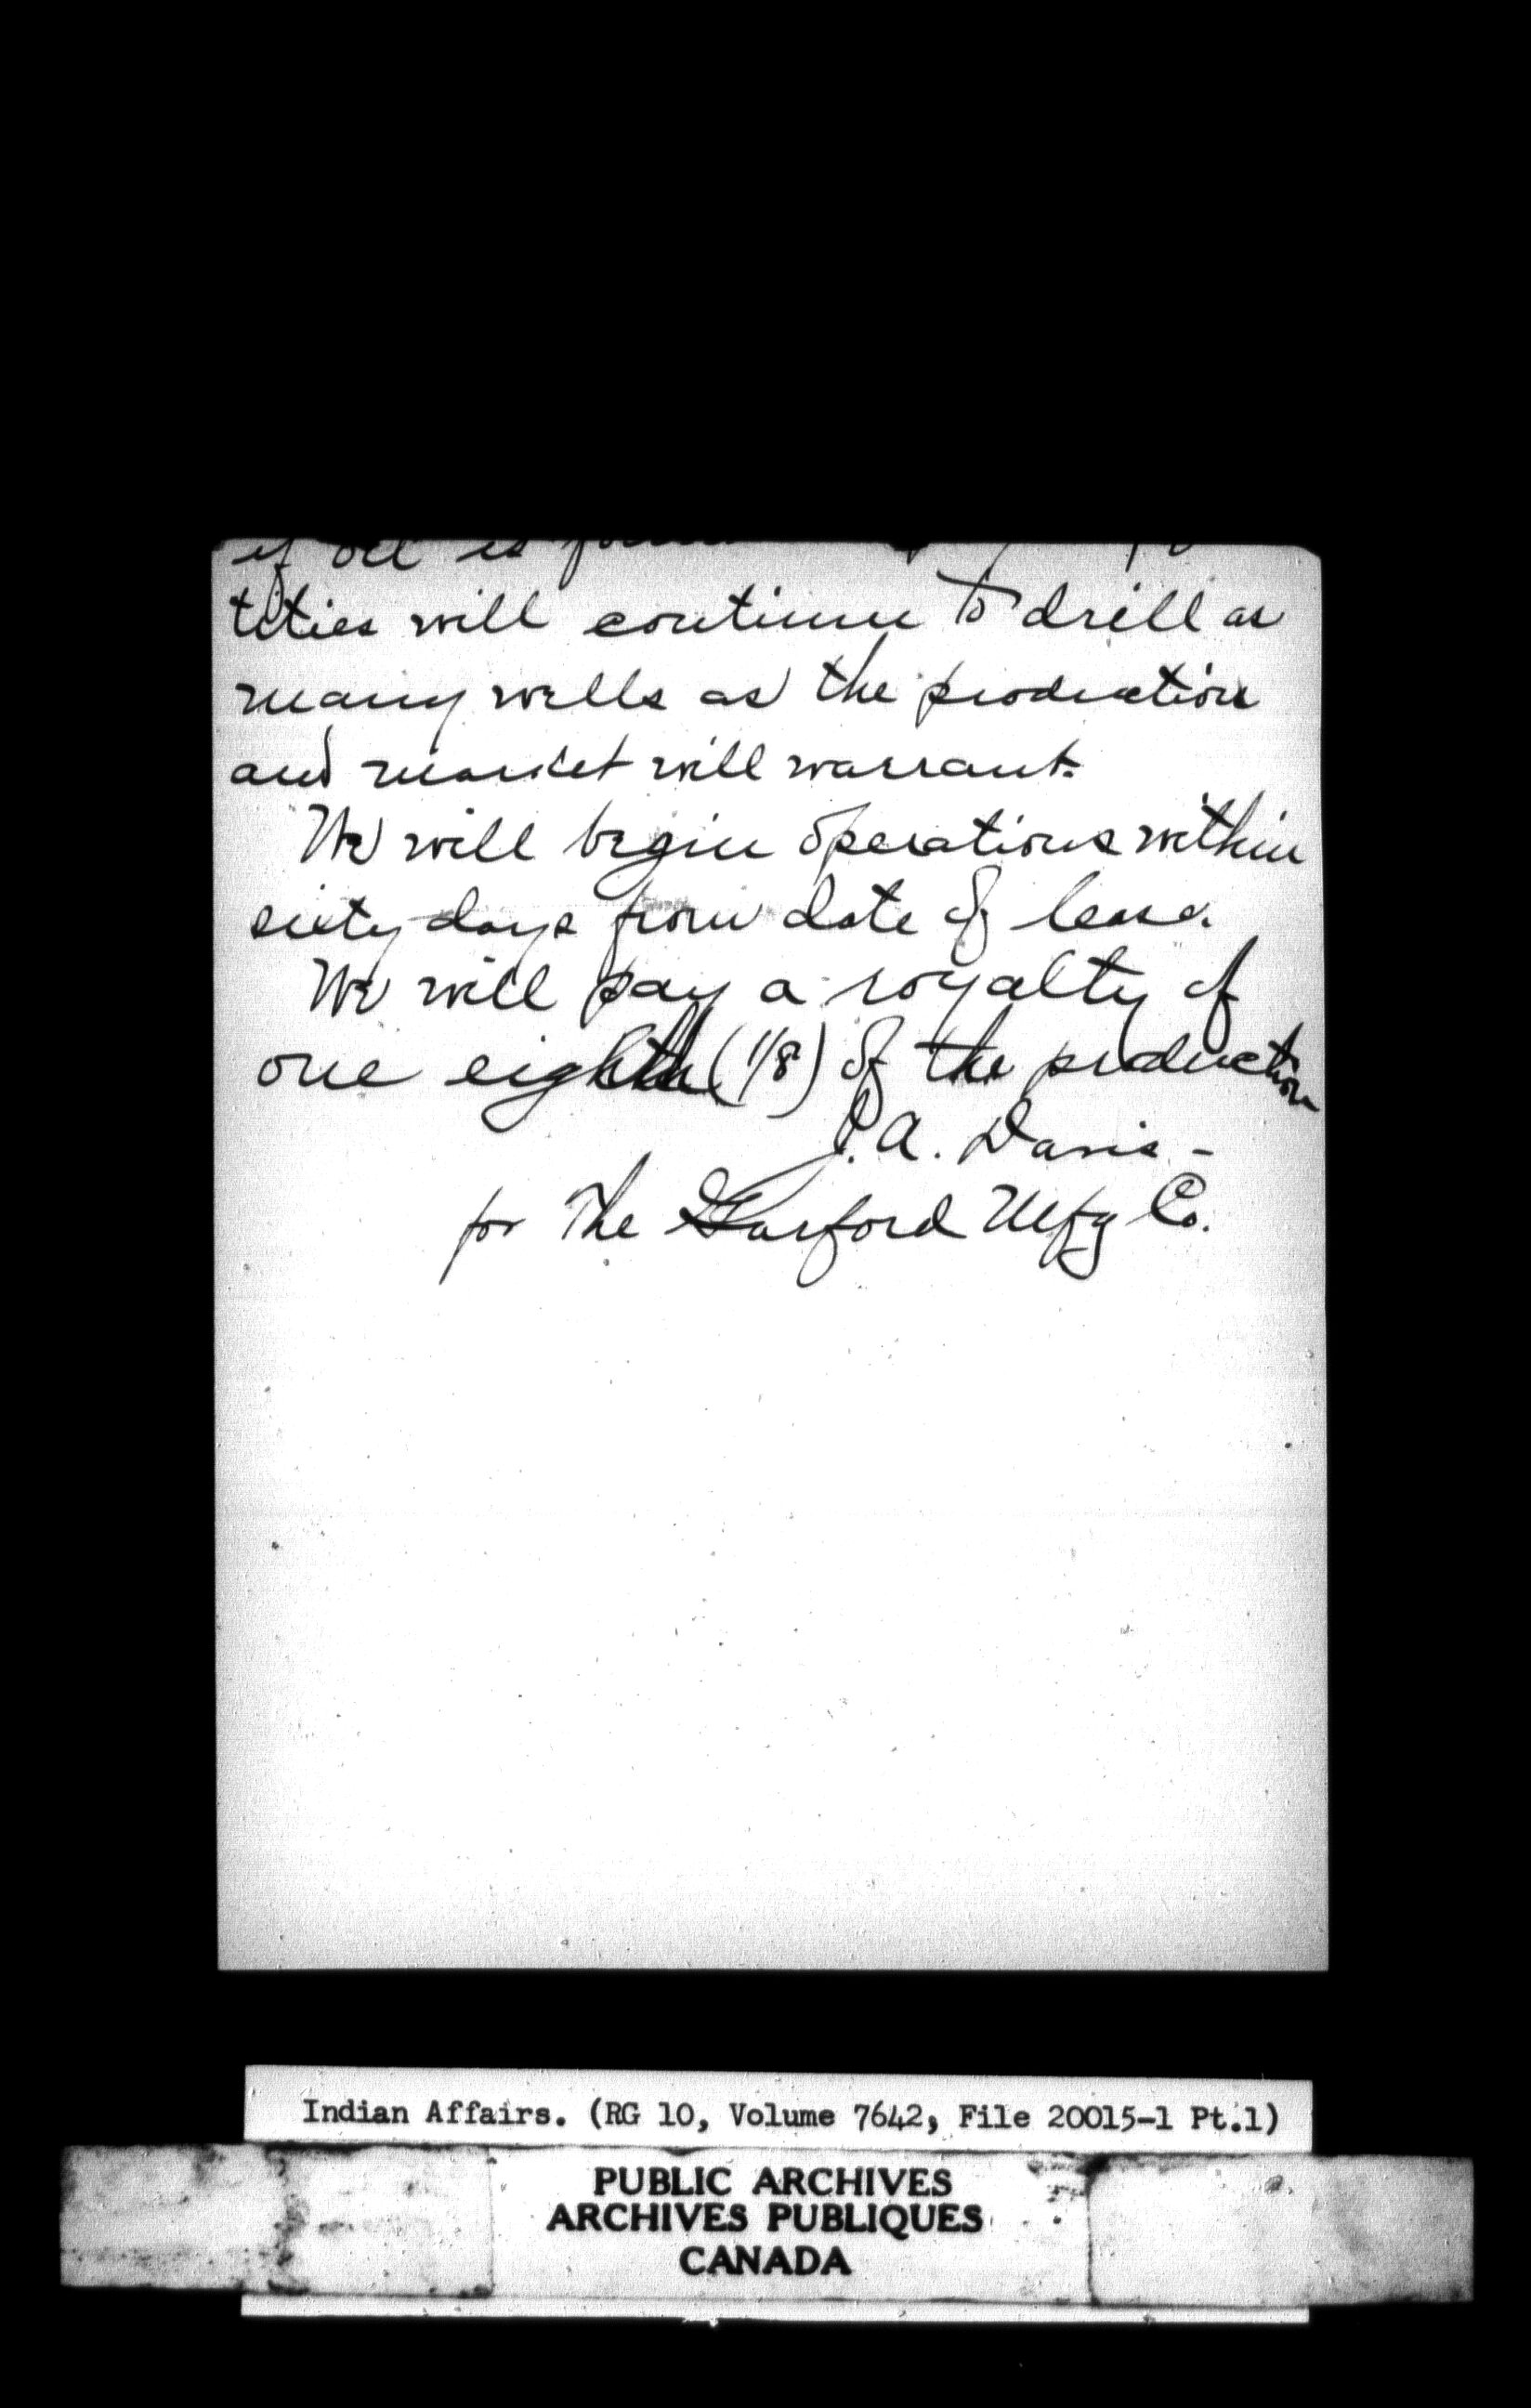 if oil is found
tities will continue to drill as
many wells as the production
and market will warrant.
We will begin operations within
sixty days from date of lease.
We will pay a royalty of
one eighth (1/8) of the production
J. A. Davis -
for The Garford Mfg Co.
Indian Affairs. (RG 10, Volume 7642, File 20015-1 Pt.1)
PUBLIC ARCHIVES
ARCHIVES PUBLIQUES
CANADA